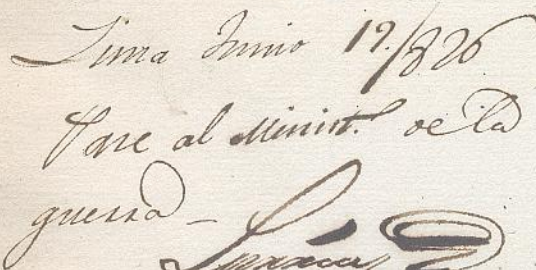 Lima Junio 19./826
Pase al Minist.º de la
guerra_